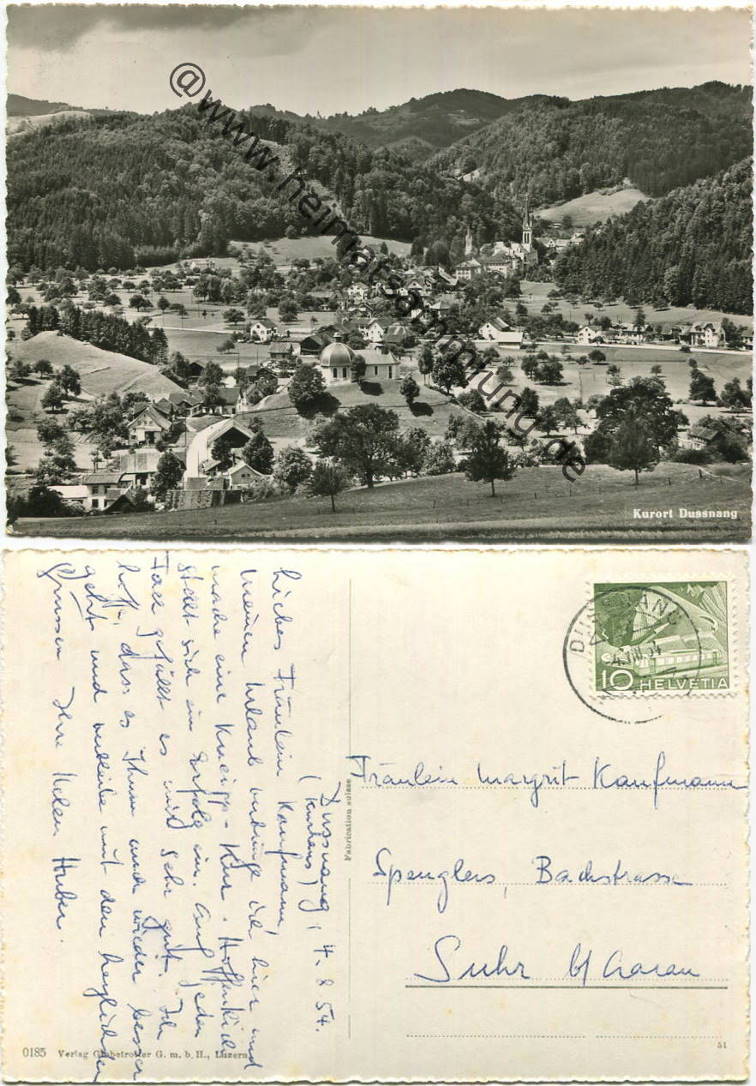 @www.heimatsammlung.de
Kurort Dussnang
Dussnang, 4. 8. 54.
(Thurgau)
Liebes Fräulein Kaufmann,
Meinen Urlaub verbringe ich hier und
mache eine Kneipp-Kur. Hoffentlich
stellt sich ein Erfolg ein. Auf jeden
Fall gefällt es mir sehr gut. Ich
hoffe, dass es Ihnen auch wieder besser
geht und verbleibe mit den herzlichsten
Grüssen Ihre Helen Huber.
DUSSNANG
HELVETIA
10
Fabrication suisse
Fräulein Margrit Kaufmann
Spenglers, Bachstrasse
Suhr b/Aarau
0185 Verlag Globetrotter G. m. b. H., Luzern
51